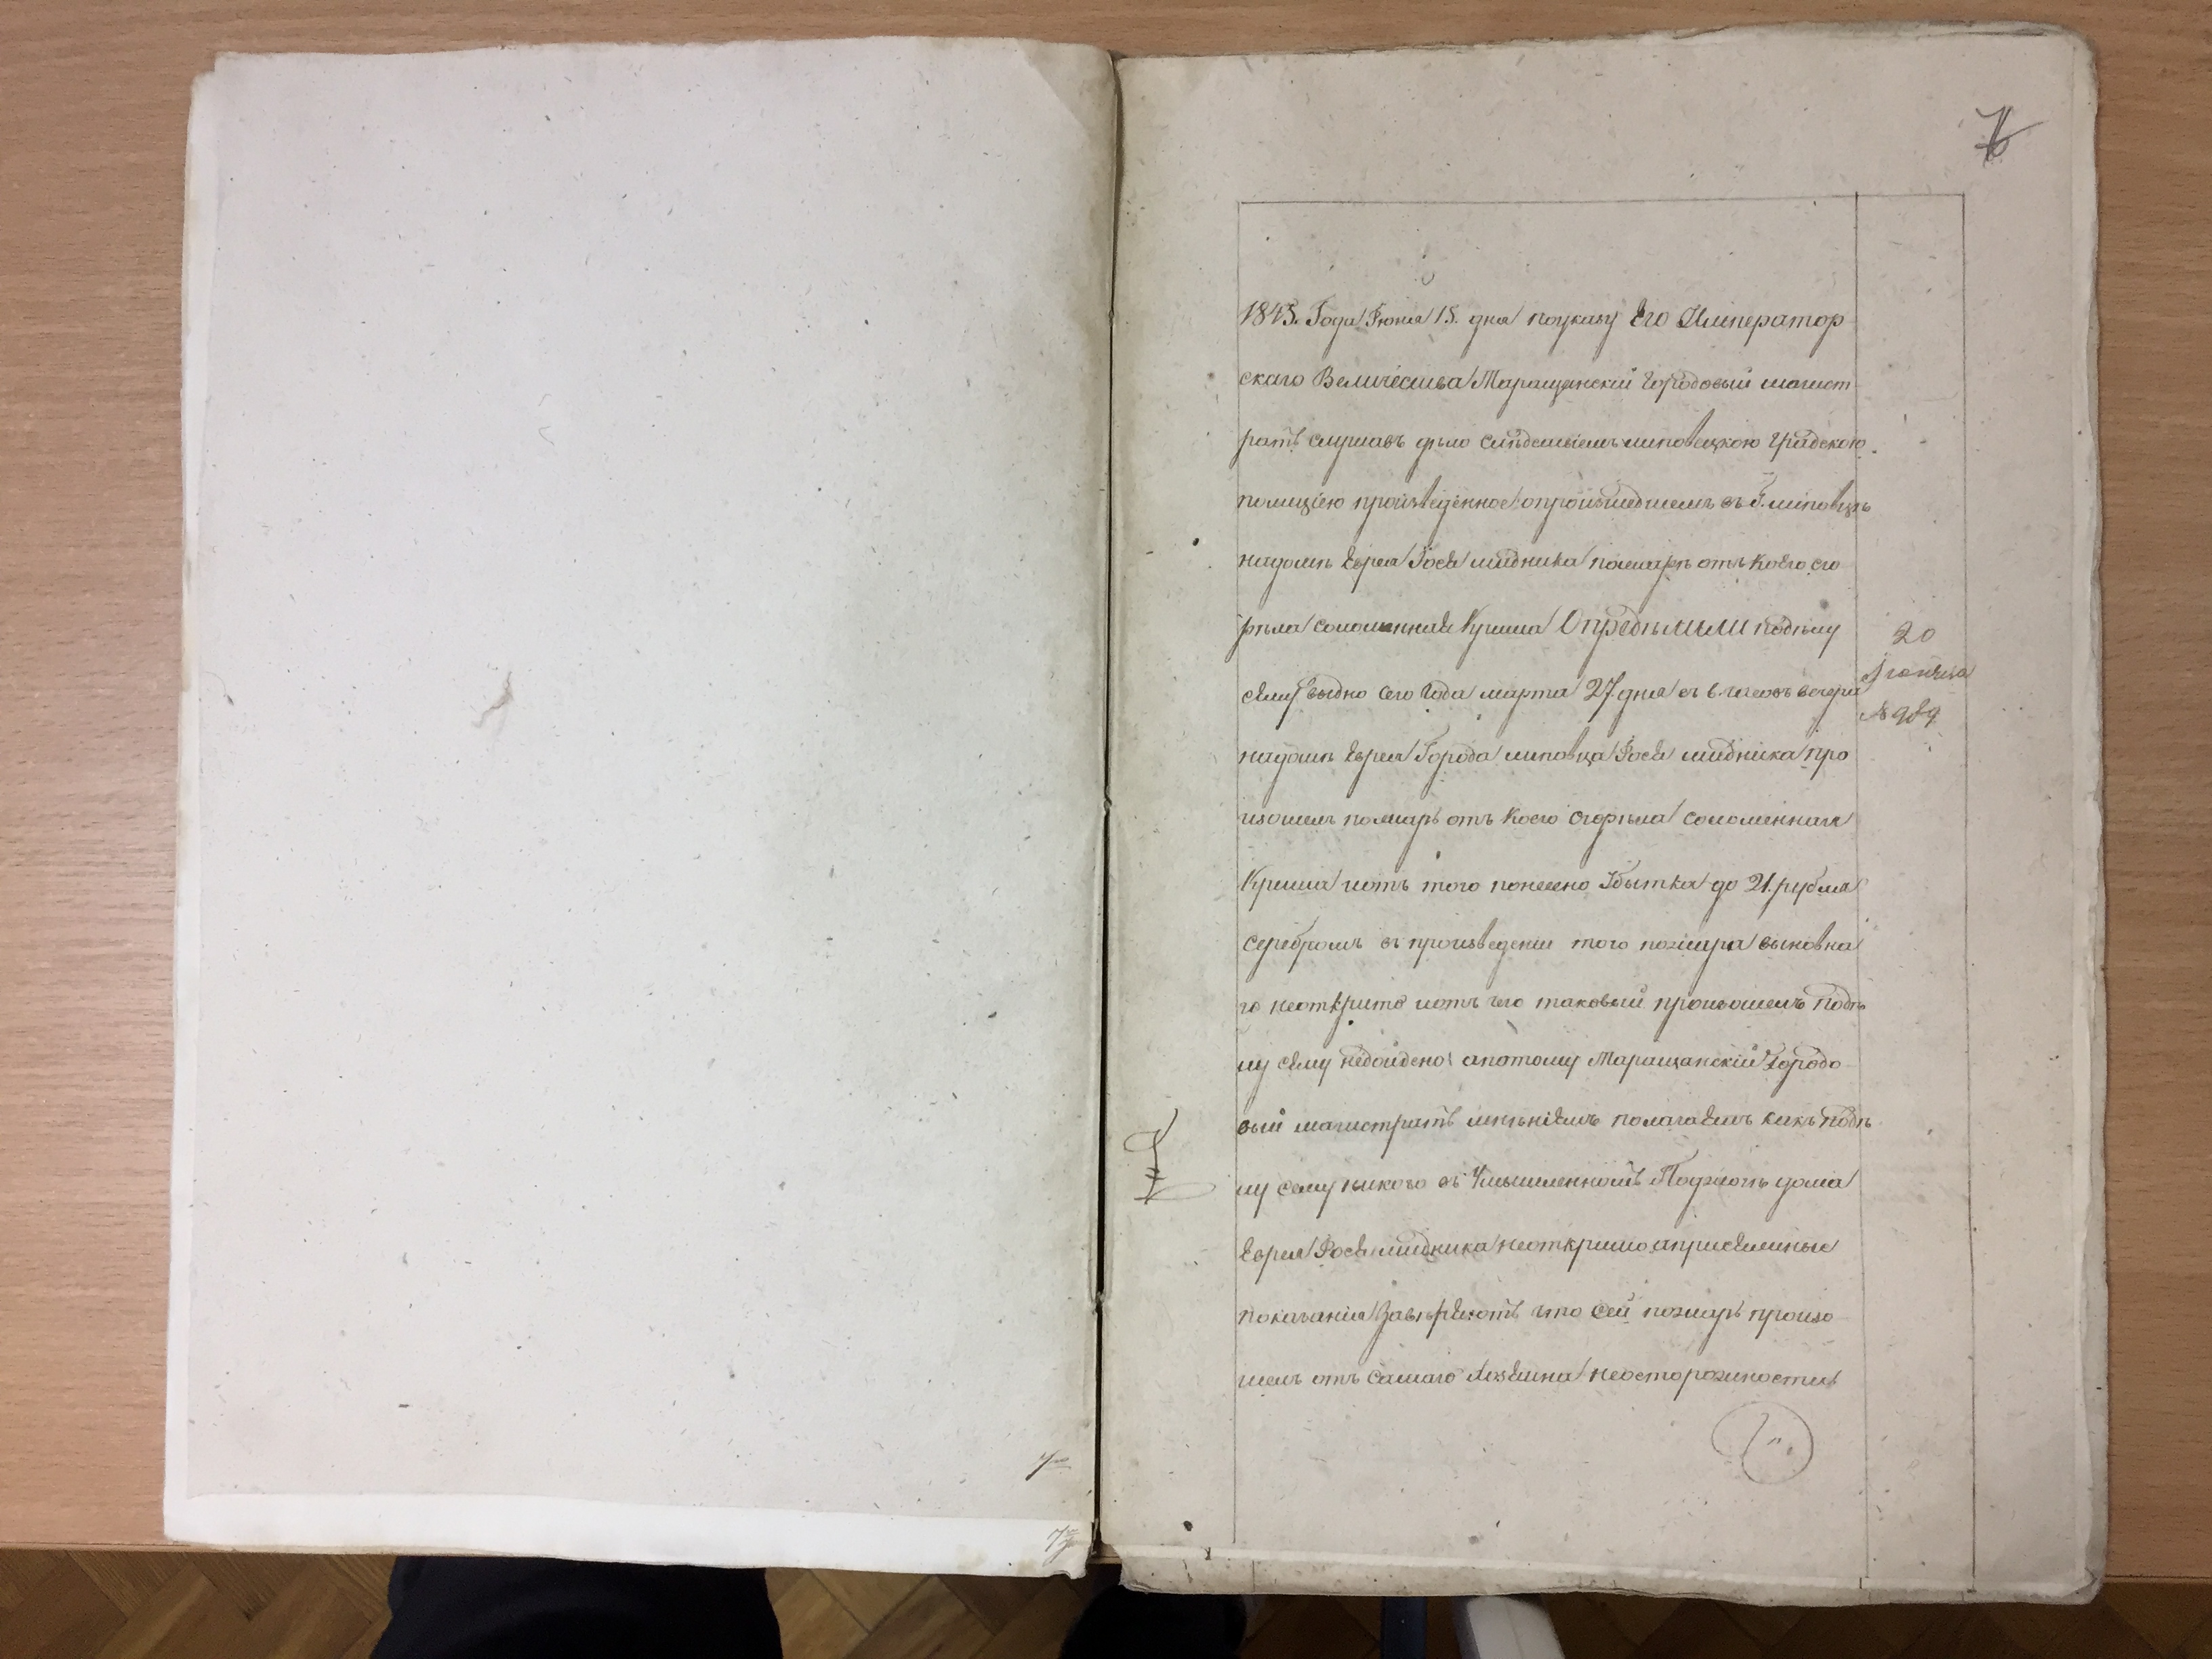 7
1845. Года Іюня 15. дня поуказу Его Император
скаго Величества Таращанскій Городовый магист
ратъ слушавъ дѣло слѣдствіемъ липовецкою градскою
полиціею произведенное опроизшедшемъ въ Г. липовцѣ
надомѣ Еврея Іося мидника пожарѣ отъ коего сго
рѣла соломенная Криша Опредѣлили подѣлу
сему видно сего Года марта 27. дня въ 6. часовъ вечера
надомѣ Еврея Города липовца Іося мидника про
изошелъ пожаръ отъ коего сгорѣла соломенная
Криша иотъ того понесено Убытка до 21. рубля
серебромъ въ произведеніи того пожара выновна
го неоткрито иотъ чего таковый произошелъ подѣ
лу сему недойдено апотому Таращанскій Городо
вый магистратъ мнѣніемъ полагаемъ какъ подѣ
лу сему никого въ Умышленномъ Поджогѣ дома
Еврея Іося мидника неоткрито априсяжные
показанія Завѣряютъ что сей пожаръ произо
шелъ отъ самаго хозяина неосторожности
20
№ 989